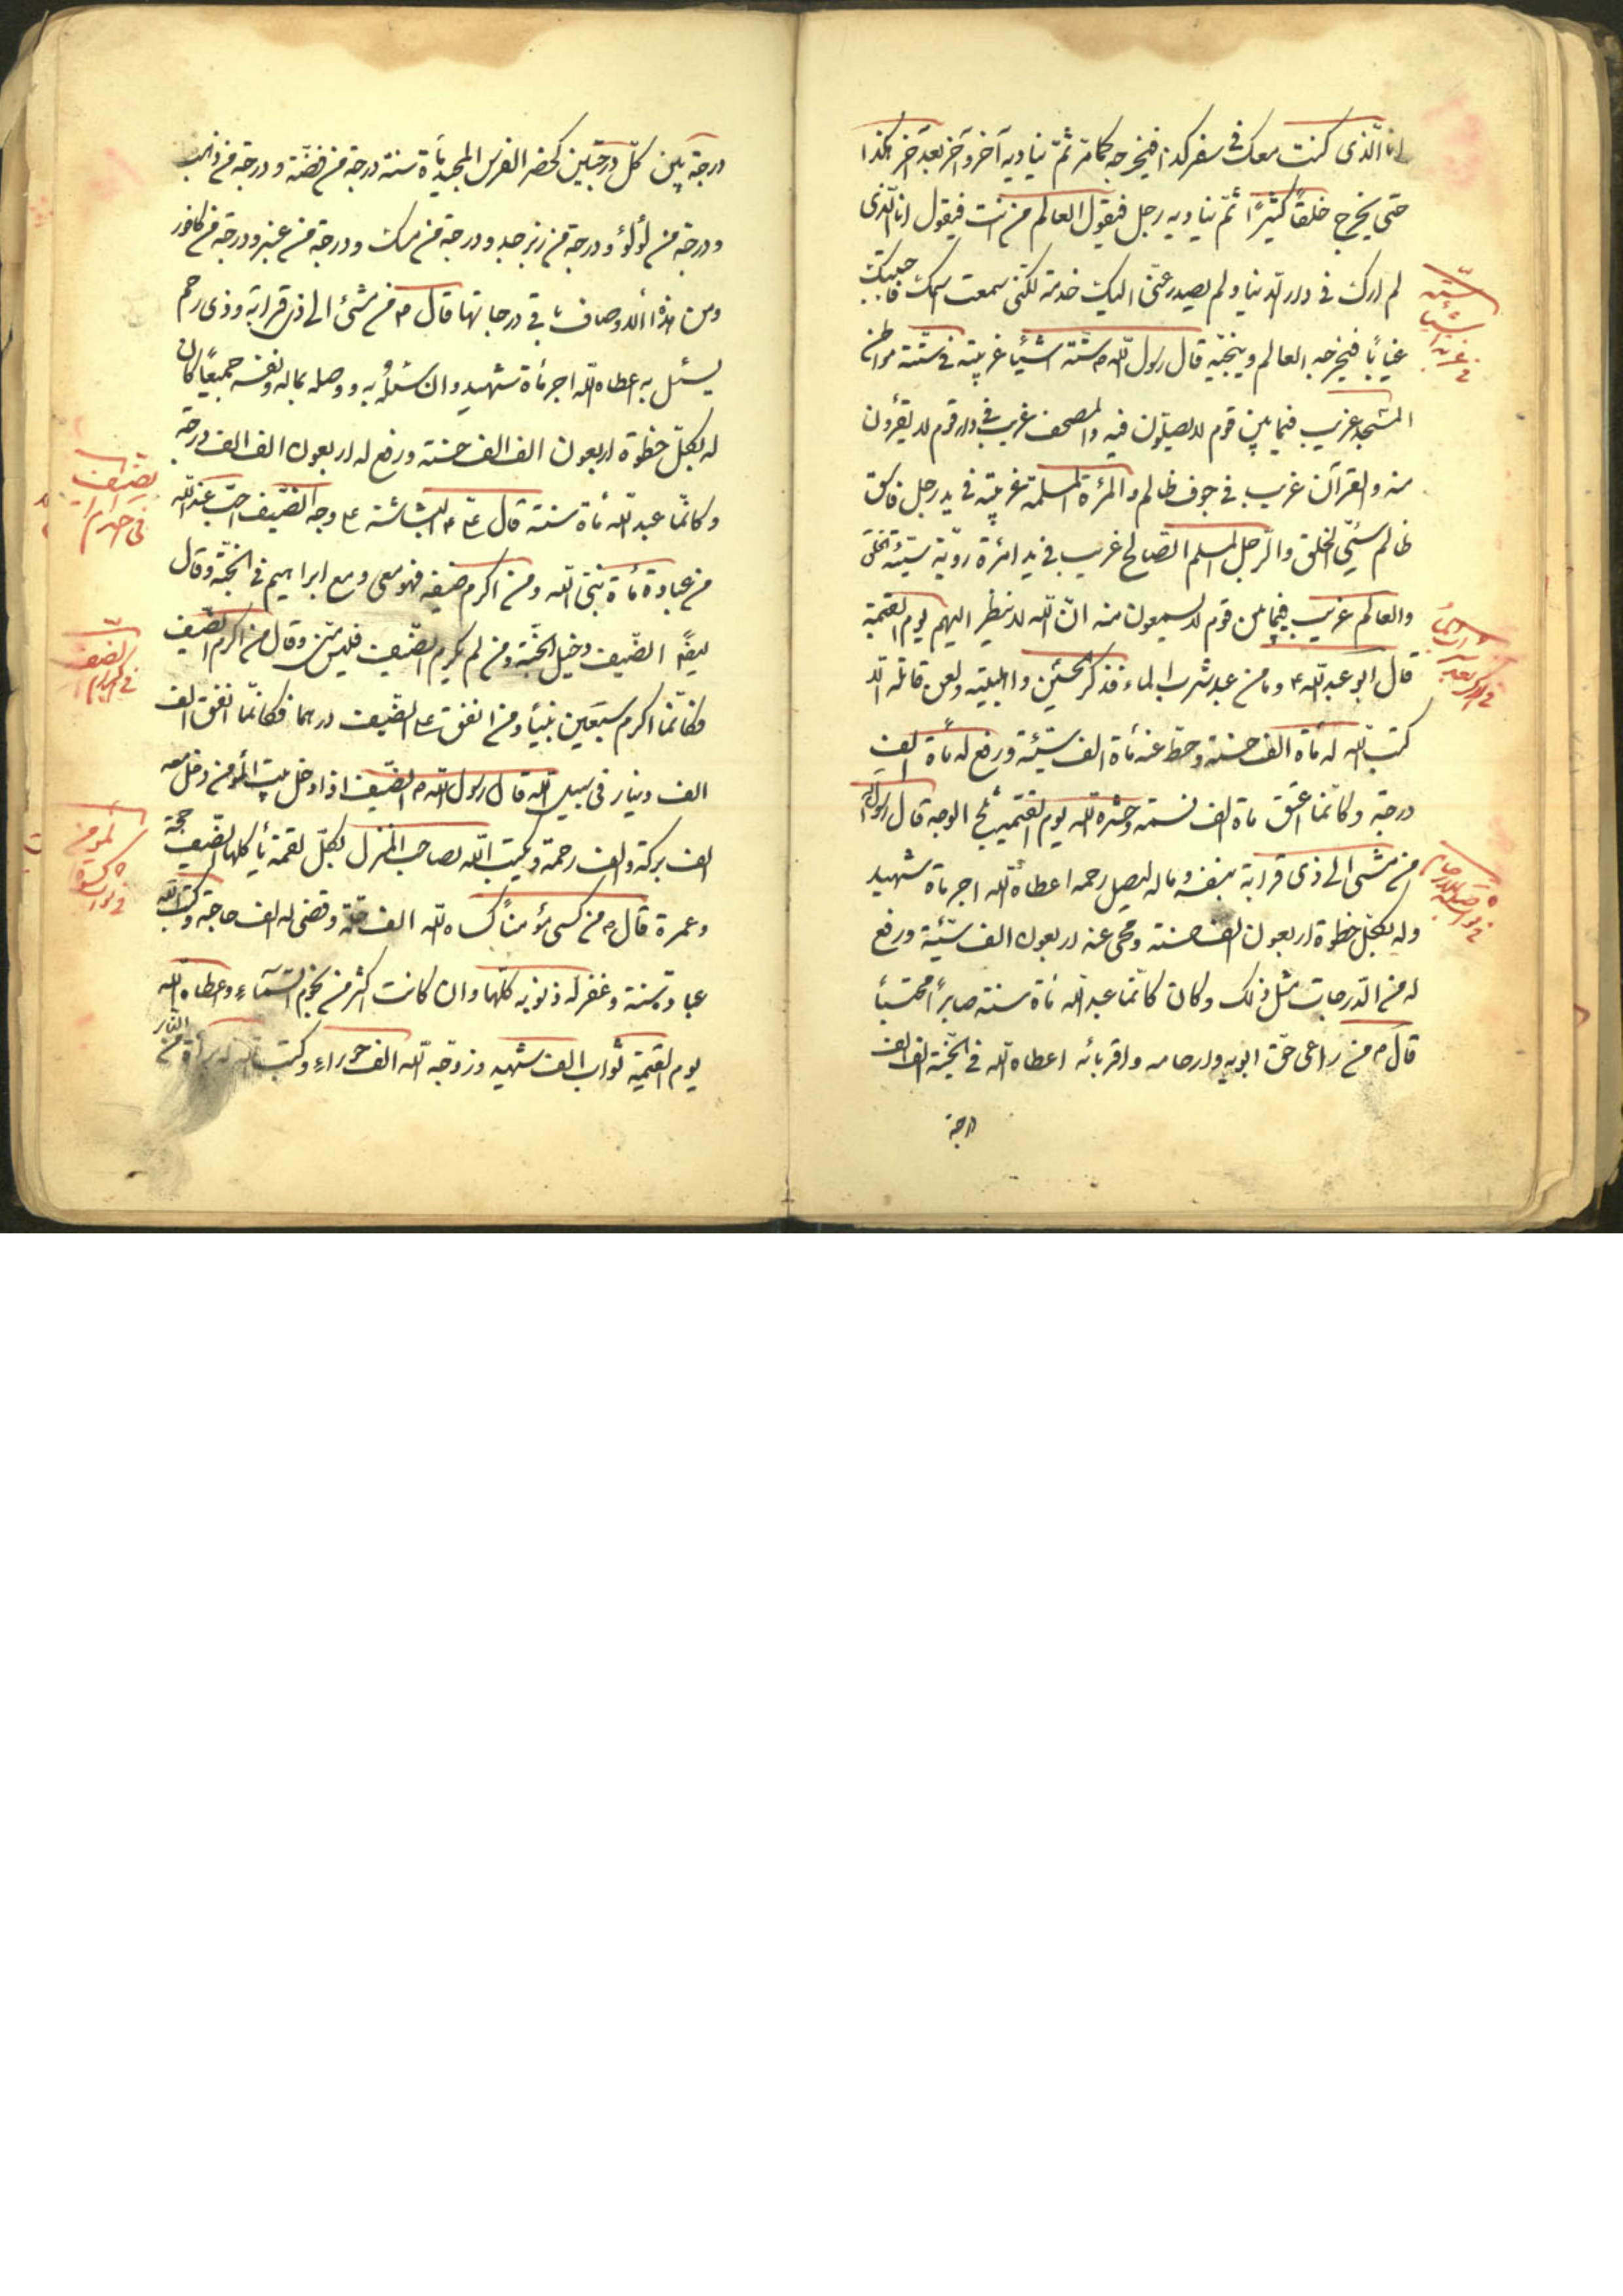 انا الّذى كنت معك فى سفر كذا فيخرجه كما مرّ ثمّ يناديه آخر وآخر بعد آخر هكذا
حتى يخرج خلقًا كثيرًا ثمّ يناديه رجل فيقول العالم من انت فيقول انا الّذى
لم ارك فى دار الدنيا ولم يصدر عنّى اليك خدمة لكنّى سمعت اسمك فاحببتك
غيابًا فيخرجه العالم وينجيه قال رسول اللّه ص ستّة اشيا غريبة فى ستّة مواطن
المسجد غريب فيما بين قوم لا يصلّون فيه والمصحف غريب فى دار قوم لا يقرؤن
منه والقرآن غريب فى جوف ظالم والمرئة المسلمة غريبة فى يد رجل فاسق
ظالم سيّئ الخلق والرّجل المسلم الصّالح غريب فى يد امرئة رديّة سيّئة الخلق
والعالم غريب فيما بين قوم لا يسمعون منه انّ اللّه لا ينظر اليهم يوم القيمة
قال ابو عبد اللّه ع وما من عبد شرب الماء فذكر الحسين واهلبيته ولعن قاتله الّا
كتب اللّه له مأة الف حسنة وحطّ عنه مأة الف سيّئة ورفع له مأة الف
درجة وكانّما اعتق مأة الف نسمة وحشره اللّه يوم القيمة ثلج الوجه قال رسول
من مشى الى ذى قرابة بنفسه وماله ليصل رحمه اعطاه اللّه اجر مأة شهيد
وله بكلّ خطوة اربعون الف حسنة ومحى عنه اربعون الف سيّئة ورفع
له من الدّرجات مثل ذلك وكان كانّما عبد اللّه مأة سنة صابرًا محتسبًا
قال ص من راعى حقّ ابويه وارحامه واقربائه اعطاه اللّه فى الجنّة الف الف
درجة
ستّة اشيا
فى ثواب صلة الارحام
درجة بين كلّ درجتين كحضر الفرس المجيد مأة سنة درجة من فضّة ودرجة من ذهب
ودرجة من لؤلؤ ودرجة من زبرجد ودرجة من مسك ودرجة من عنبر ودرجة من كافور
ومن هذه الاوصاف باقى درجاتها قال ص من مشى الى ذى قرابة وذى رحم
يسئل به اعطاه اللّه اجر مأة شهيد وان سئل به ووصله بماله ونفسه جميعًا كان
له بكلّ خطوة اربعون الف الف حسنة ورفع له اربعون الف الف درجة
وكانّما عبد اللّه مأة سنة قال على ع البشاشة على وجه الضّيف احبّ عند اللّه
من عبادة مأة نبىّ اللّه ومن اكرم ضيفه فهو معى ومع ابراهيم فى الجنّة وقال
ايضًا الضّيف دخيل الجنّة ومن لم يكرم الضّيف فليس منّى وقال من اكرم الضّيف
فكانّما اكرم سبعين نبيًا ومن انفق على الضّيف درهما فكانّما انفق الف
الف دينار فى سبيل اللّه قال رسول اللّه ص الضّيف اذا دخل بيت المؤمن دخل معه
الف بركة والف رحمة ويكتب اللّه لصاحب المنزل بكلّ لقمة يأكلها الضّيف حجة
وعمرة قال ص من كسى مؤمنًا كساه اللّه الف حلّة وقضى له الف حاجة وكتب اللّه له
عبادة سنة وغفر له ذنوبه كلّها وان كانت اكثر من نجوم السّماء واعطاه اللّه
يوم القيمة ثواب الف شهيد وزوّجه اللّه الف حوراء وكتب اللّه له براءة من النّار
فى اكرام الضيف